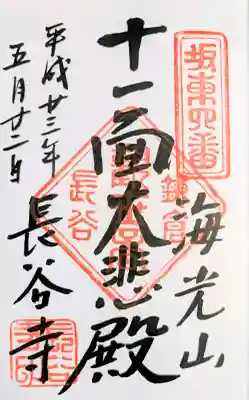 坂東四番
海光山
十一面大悲殿
鎌倉
長谷
長谷寺
平成廿三年
五月廿二日